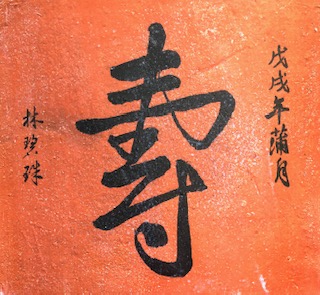 戊戌年蒲月
壽
林碧珠